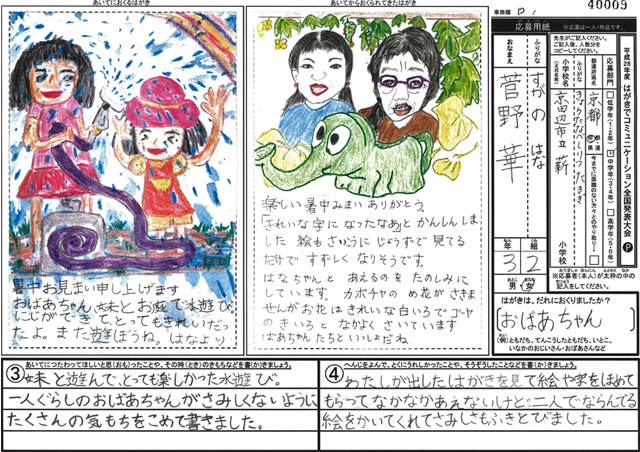 あいてにおくるはがき
あいてからおくられてきたはがき
40009
暑中お見まい申し上げます
おばあちゃん、妹とお庭で水遊び
にじができて、とってもきれいだっ
たよ。また遊ぼうね。はなより
楽しい暑中みまいありがとう。
「きれいな字になったなあ」とかんしんしま
した 絵もさいこうにじょうずで見てる
だけで すずしくなりそうです。
はなちゃんと あえるのを たのしみに
しています。カボチャの め花が さきま
せんが お花はきれいな白いろで ゴーヤ
の きいろと なかよく さいています
ばあちゃんたちと いっしょだね
事務欄
応募用紙
※応募は一人1作品まで。
平成28年度 はがきでコミュニケーション全国発表大会 P
先生がご記入ください。
ご記入後、人数分を
コピーしてください。
応募部門
低学年(1・2年)
中学年(3・4年)
高学年(5・6年)
都道府県名
京都
都道府県
今までに面識のない方々とのやり取り
ふりがな
小学校名
(正式名称)
京田辺市立 薪
小学校
ふりがな
すがの はな
おなまえ
菅野 華
3年
2組
男 女
※応募者(本人)が太枠の中の
はがきは、だれにおくりましたか?
おばあちゃん
(例)ともだち、てんこうしたともだち、いとこ、
いなかのおじいさん・おばあさんなど
あいてにつたわってほしいと思(おも)ったことや、その時(とき)のきもちなどを書(か)きましょう。
③妹と遊んで、とっても楽しかった水遊び。
一人ぐらしのおばあちゃんがさみしくないように
たくさんの気もちをこめて書きました。
へんじをよんで、とくにうれしかったことや、そうぞうしたことなどを書(か)きましょう。
④わたしが出したはがきを見て絵や字をほめて
もらってなかなかあえないけど、二人でならんでる
絵をかいてくれてさみしさもふきとびました。